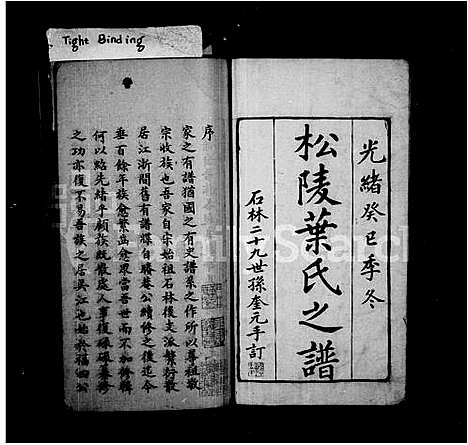 Tight Binding
光緒癸巳季冬
松陵葉氏之譜
石林二十九世孫奎元手訂
序
家之有譜猶國之有史譜葉之作所以尊祖敬
宗收族也吾家自宋始祖石林後支派繁衍散
居江浙間舊有譜牒自公續修之後迄今
垂百餘年族愈繁齒愈眾當吾世而不加修輯
何以紹先緒乎顧族既散處人事復碌碌纂修
之功亦復不易吾族之居吳江也始於福四公
FamilySearch